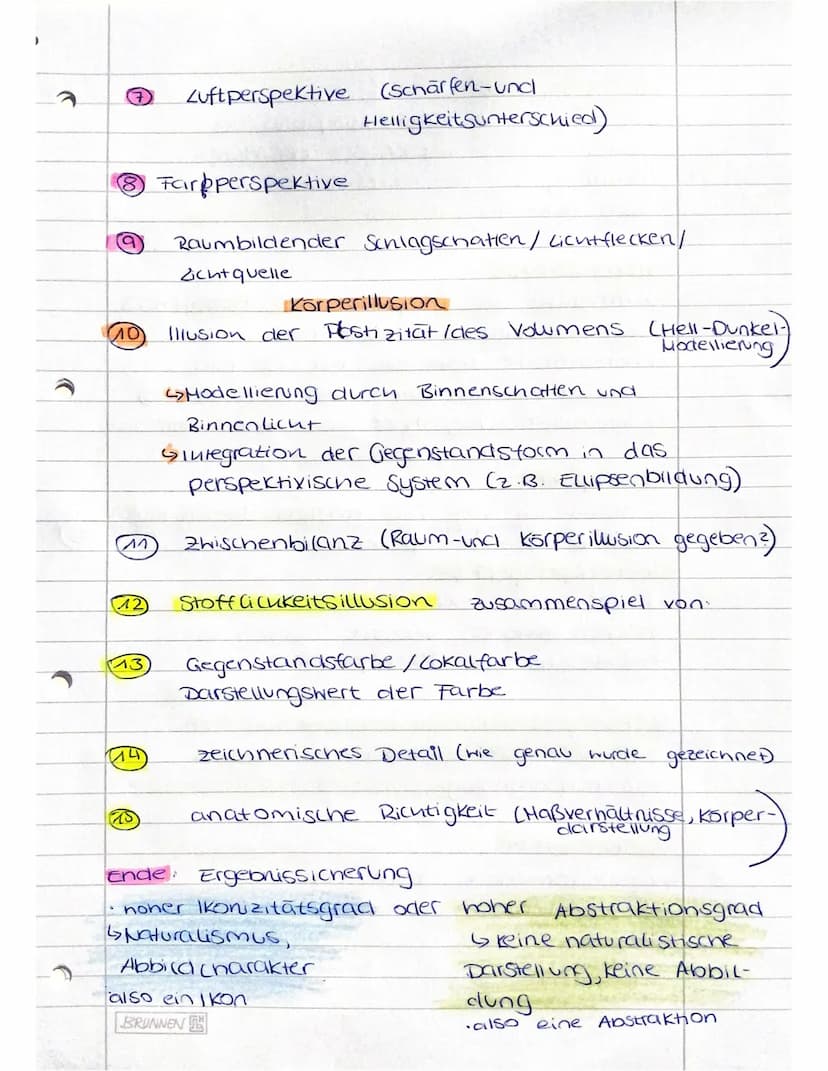 7 Luftperspektive (Schärfen-und
Helligkeitsunterschied)
8 Farbperspektive
9 Raumbildender Schlagschatten / Lichtflecken /
Lichtquelle
Körperillusion
10 Illusion der Plastizität / des Volumens (Hell-Dunkel-
Modellierung)
↳Modellierung durch Binnenschatten und
Binnenlicht
↳Integration der Gegenstandsform in das
perspektivische System (z.B. Ellipsenbildung)
11 Zwischenbilanz (Raum-und Körperillusion gegeben?)
12 Stofflichkeitsillusion zusammenspiel von:
13 Gegenstandsfarbe / Lokalfarbe
Darstellungswert der Farbe
14 zeichnerisches Detail (wie genau wurde gezeichnet)
15 anatomische Richtigkeit (Maßverhältnisse, Körper-
darstellung)
Ende: Ergebnissicherung
· hoher Ikonizitätsgrad oder hoher Abstraktionsgrad
↳Naturalismus, ↳ keine naturalistische
Abbildcharakter Darstellung, keine Abbil-
also ein Ikon dung
·also eine Abstraktion
BRUNNEN